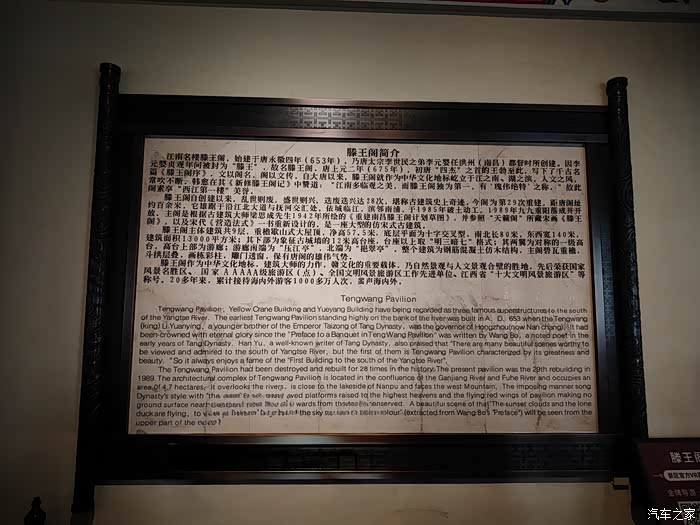 滕王阁简介
江南名楼滕王阁，始建于唐永徽四年（653年），乃唐太宗李世民之弟李元婴任洪州（南昌）都督时所创建。因李
元婴贞观年间被封为“滕王”，故名滕王阁。唐上元二年（675年），初唐“四杰”之首的王勃至此，写下了千古名
篇《滕王阁序》，文以阁名，阁以文传。自大唐以来，滕王阁就作为中华文化地标屹立于江之南、湖之滨，人文之风，
常吹不断。韩愈在其《新修滕王阁记》中赞道：“江南多临观之美，而滕王阁独为第一，有‘瑰伟绝特’之称。”故此
阁素享“西江第一楼”美誉。
滕王阁自创建以来，乱世则废，盛世则兴，迭废迭兴达28次，堪称古建筑史上奇迹。今阁为第29次重建，距唐阁址
约百余米，它雄踞于沿江北大道与抚河交汇处，依城临江，滨邻南浦，于1985年破土动工，1989年九九重阳落成并开
放。主阁是根据古建筑大师梁思成先生1942年所绘的《重建南昌滕王阁计划草图》，并参照“天籁阁”所藏宋画《滕王
阁》，以及宋代《营造法式》一书重新设计的，是一座大型的仿宋式古建筑。
滕王阁主体建筑共9层，重檐歇山式大屋顶，净高57.5米，底层平面为十字交叉型，南北长80米，东西宽140米，
建筑面积13000平方米；其下部为象征古城墙的12米高台座，台座以上取“明三暗七”格式；其两翼为对称的一级高
台，高台上部为游廊；游廊南端为“压江亭”，北端为“挹翠亭”，整个建筑为钢筋混凝土仿木结构，主阁碧瓦重檐，
斗拱层叠，画栋彩柱，雕门透窗，保有唐阁的雄伟气势。
滕王阁作为中华文化地标，建筑大师的力作，赣文化的重要载体，乃自然景观与人文景观合壁的胜地，先后荣获国家
风景名胜区、国家AAAAA级旅游区（点）、全国文明风景旅游区工作先进单位、江西省“十大文明风景旅游区”等
称号，20多年来，累计接待海内外游客1000多万人次，蜚声海内外。
Tengwang Pavilion
Tengwang Pavilion, Yellow Crane Building and Yueyang Building have being regarded as three famous superstructures to the south
of the Yangtse River. The earliest Tengwang Pavilion standing highly on the bank of the river was built in A. D. 653 when the Tengwang
(king) Li Yuanying, a younger brother of the Emperor Taizong of Tang Dynasty, was the governor of Hongzhou(now Nanchang). It had
been crowned with eternal glory since the "Preface to a Banquet in TengWang Pavilion" was written by Wang Bo, a noted poet in the
early years of Tang Dynasty. Han Yu, a well-known writer of Tang Dynasty, also praised that "There are many beautiful scenes worthy to
be viewed and admired to the south of Yangtse River, but the first of them is Tengwang Pavilion characterized by its greatness and
beauty. "So it always enjoys a fame of the "First Building to the south of the Yangtse River".
The Tengwang Pavilion had been destroyed and rebuilt for 28 times in the history. The present pavilion was the 29th rebuilding in
1989. The architectural complex of Tengwang Pavilion is located in the confluence of the Ganjiang River and Fuhe River and occupies an
area of 4.7 hectares. It overlooks the rivers, is close to the lakeside of Nanpu and faces the west Mountain, The imposing manner song
Dynasty's style with "the paved platforms raised to the highest heavens and the flying red wings of pavilion making no
ground surface near conserved. A beautiful scene of that "The sunset clouds and the lone
duck are flying, to the sky (extracted from Wang Bo's "Preface") will be seen from the
upper part of the
滕王阁
景区官方VR
金牌导游
汽车之家